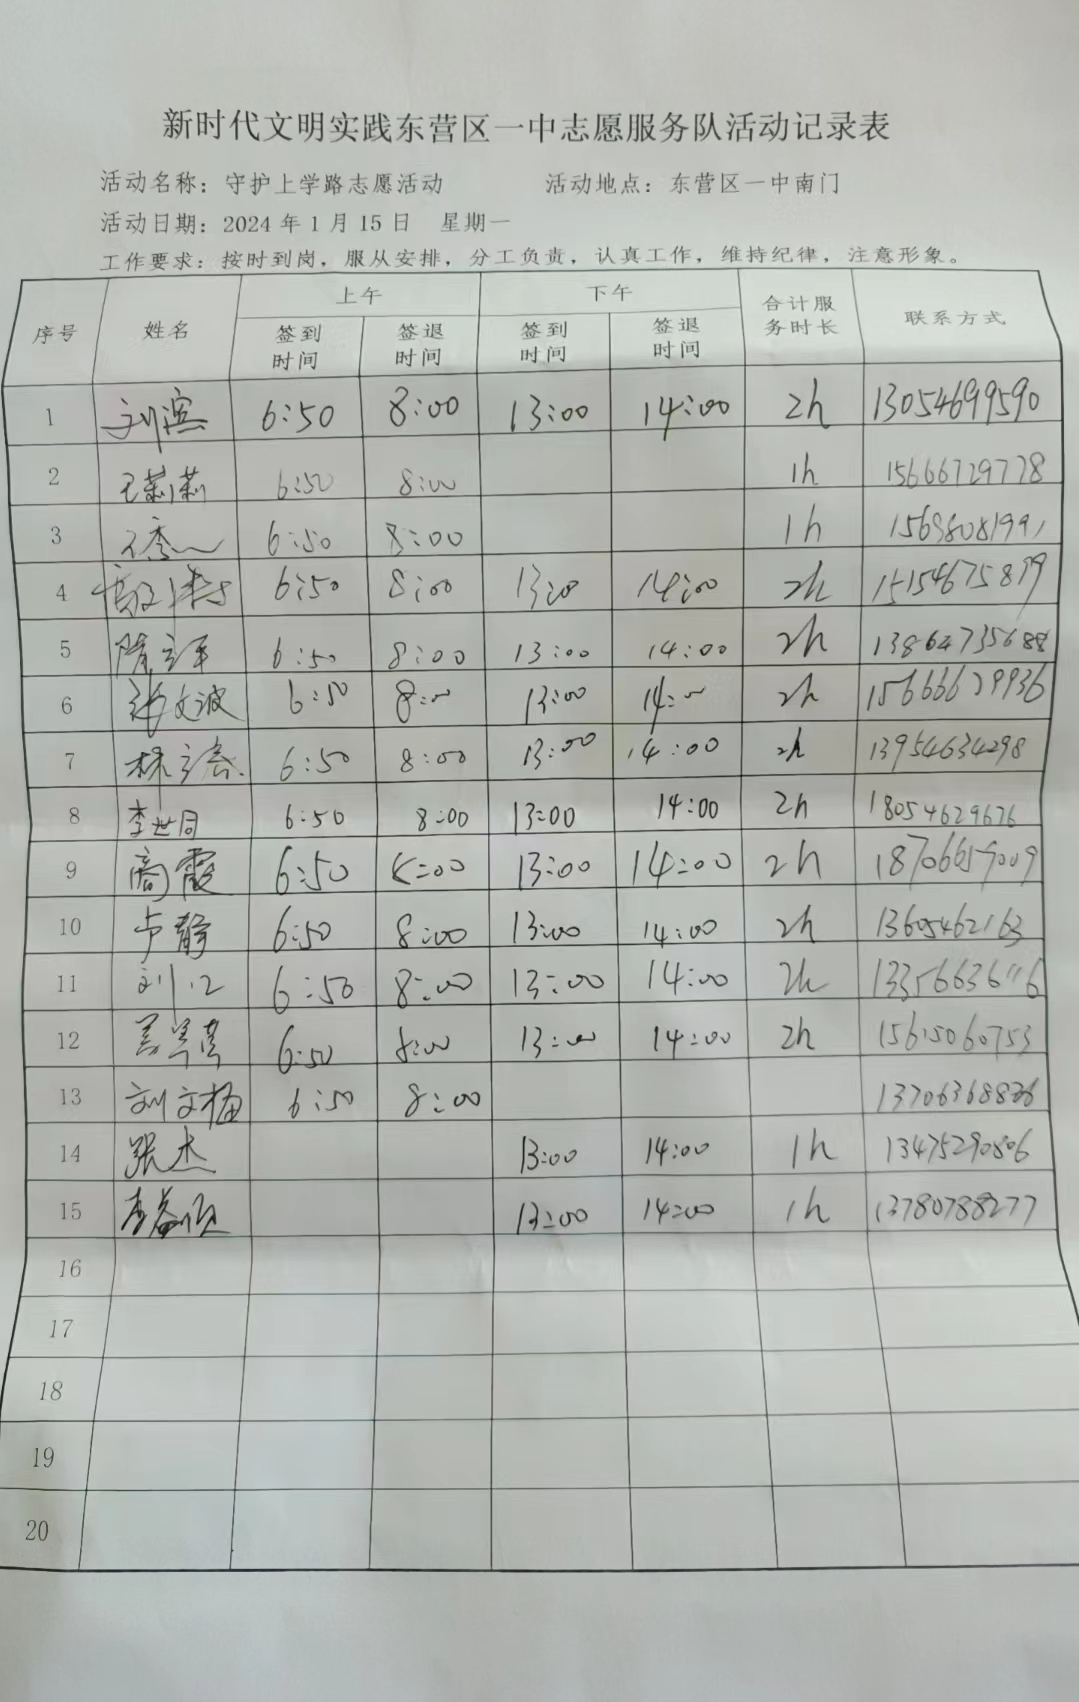 新时代文明实践东营区一中志愿服务队活动记录表
活动名称：守护上学路志愿活动 活动地点：东营区一中南门
活动日期：2024年1月15日 星期一
工作要求：按时到岗，服从安排，分工负责，认真工作，维持纪律，注意形象。
序号 姓名 上午 下午 合计服务时长 联系方式
签到时间 签退时间 签到时间 签退时间
1 刘滨 6:50 8:00 13:00 14:00 2h 13054699590
2 王莉莉 6:50 8:00 1h 15666729778
3 6:50 8:00 1h
4 6:50 8:00 13:00 14:00 2h 15154675899
5 隋立平 6:50 8:00 13:00 14:00 2h 13864735688
6 张文波 6:50 8:00 13:00 14:00 2h 15666629936
7 6:50 8:00 13:00 14:00 2h 13954634298
8 李世同 6:50 8:00 13:00 14:00 2h 18054629676
9 商霞 6:50 8:00 13:00 14:00 2h 18706659009
10 卢静 6:50 8:00 13:00 14:00 2h 13605462163
11 6:50 8:00 13:00 14:00 2h
12 6:50 8:00 13:00 14:00 2h 15615060753
13 刘文楠 6:50 8:00
14 张杰 13:00 14:00 1h 13475290806
15 13:00 14:00 1h 13780788277
16
17
18
19
20